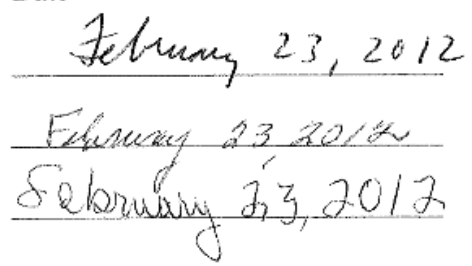 February 23, 2012
February 23, 2012
February 23, 2012